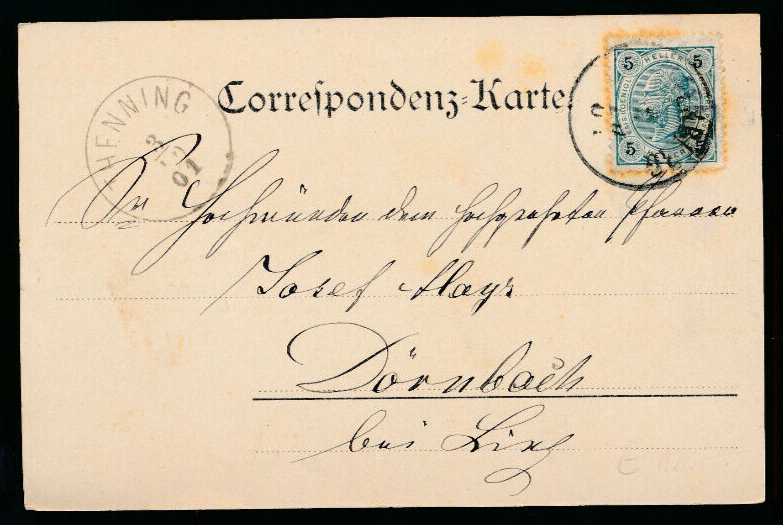 Correspondenz-Karte.
5 HELLER 5
5
HENNING
3/12
01
Sr Hochwürden dem hochgeehrten Pfarrer
Josef Mayr
Dörnbach
bei Linz